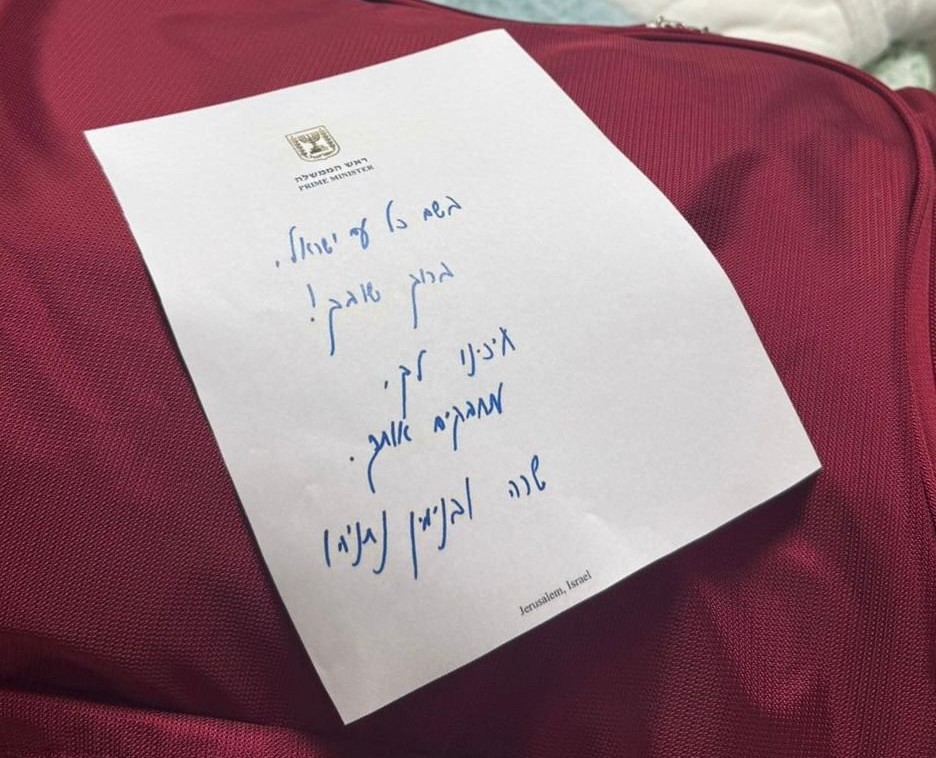 ראש הממשלה
PRIME MINISTER
בשם כל עם ישראל,
ברוך שובך!
חיכינו לך,
מחבקים אותך.
שרה ובנימין נתניהו
Jerusalem, Israel